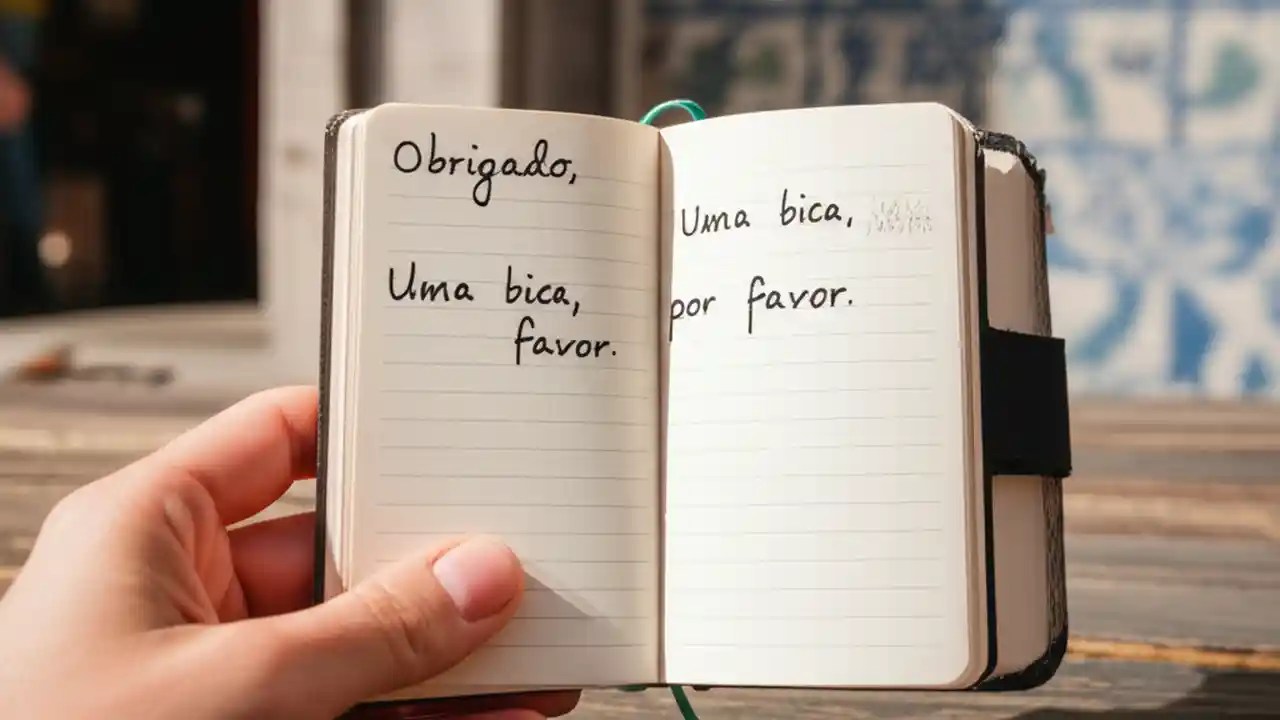 Obrigado,
Uma bica,
favor.
Uma bica,
por favor.